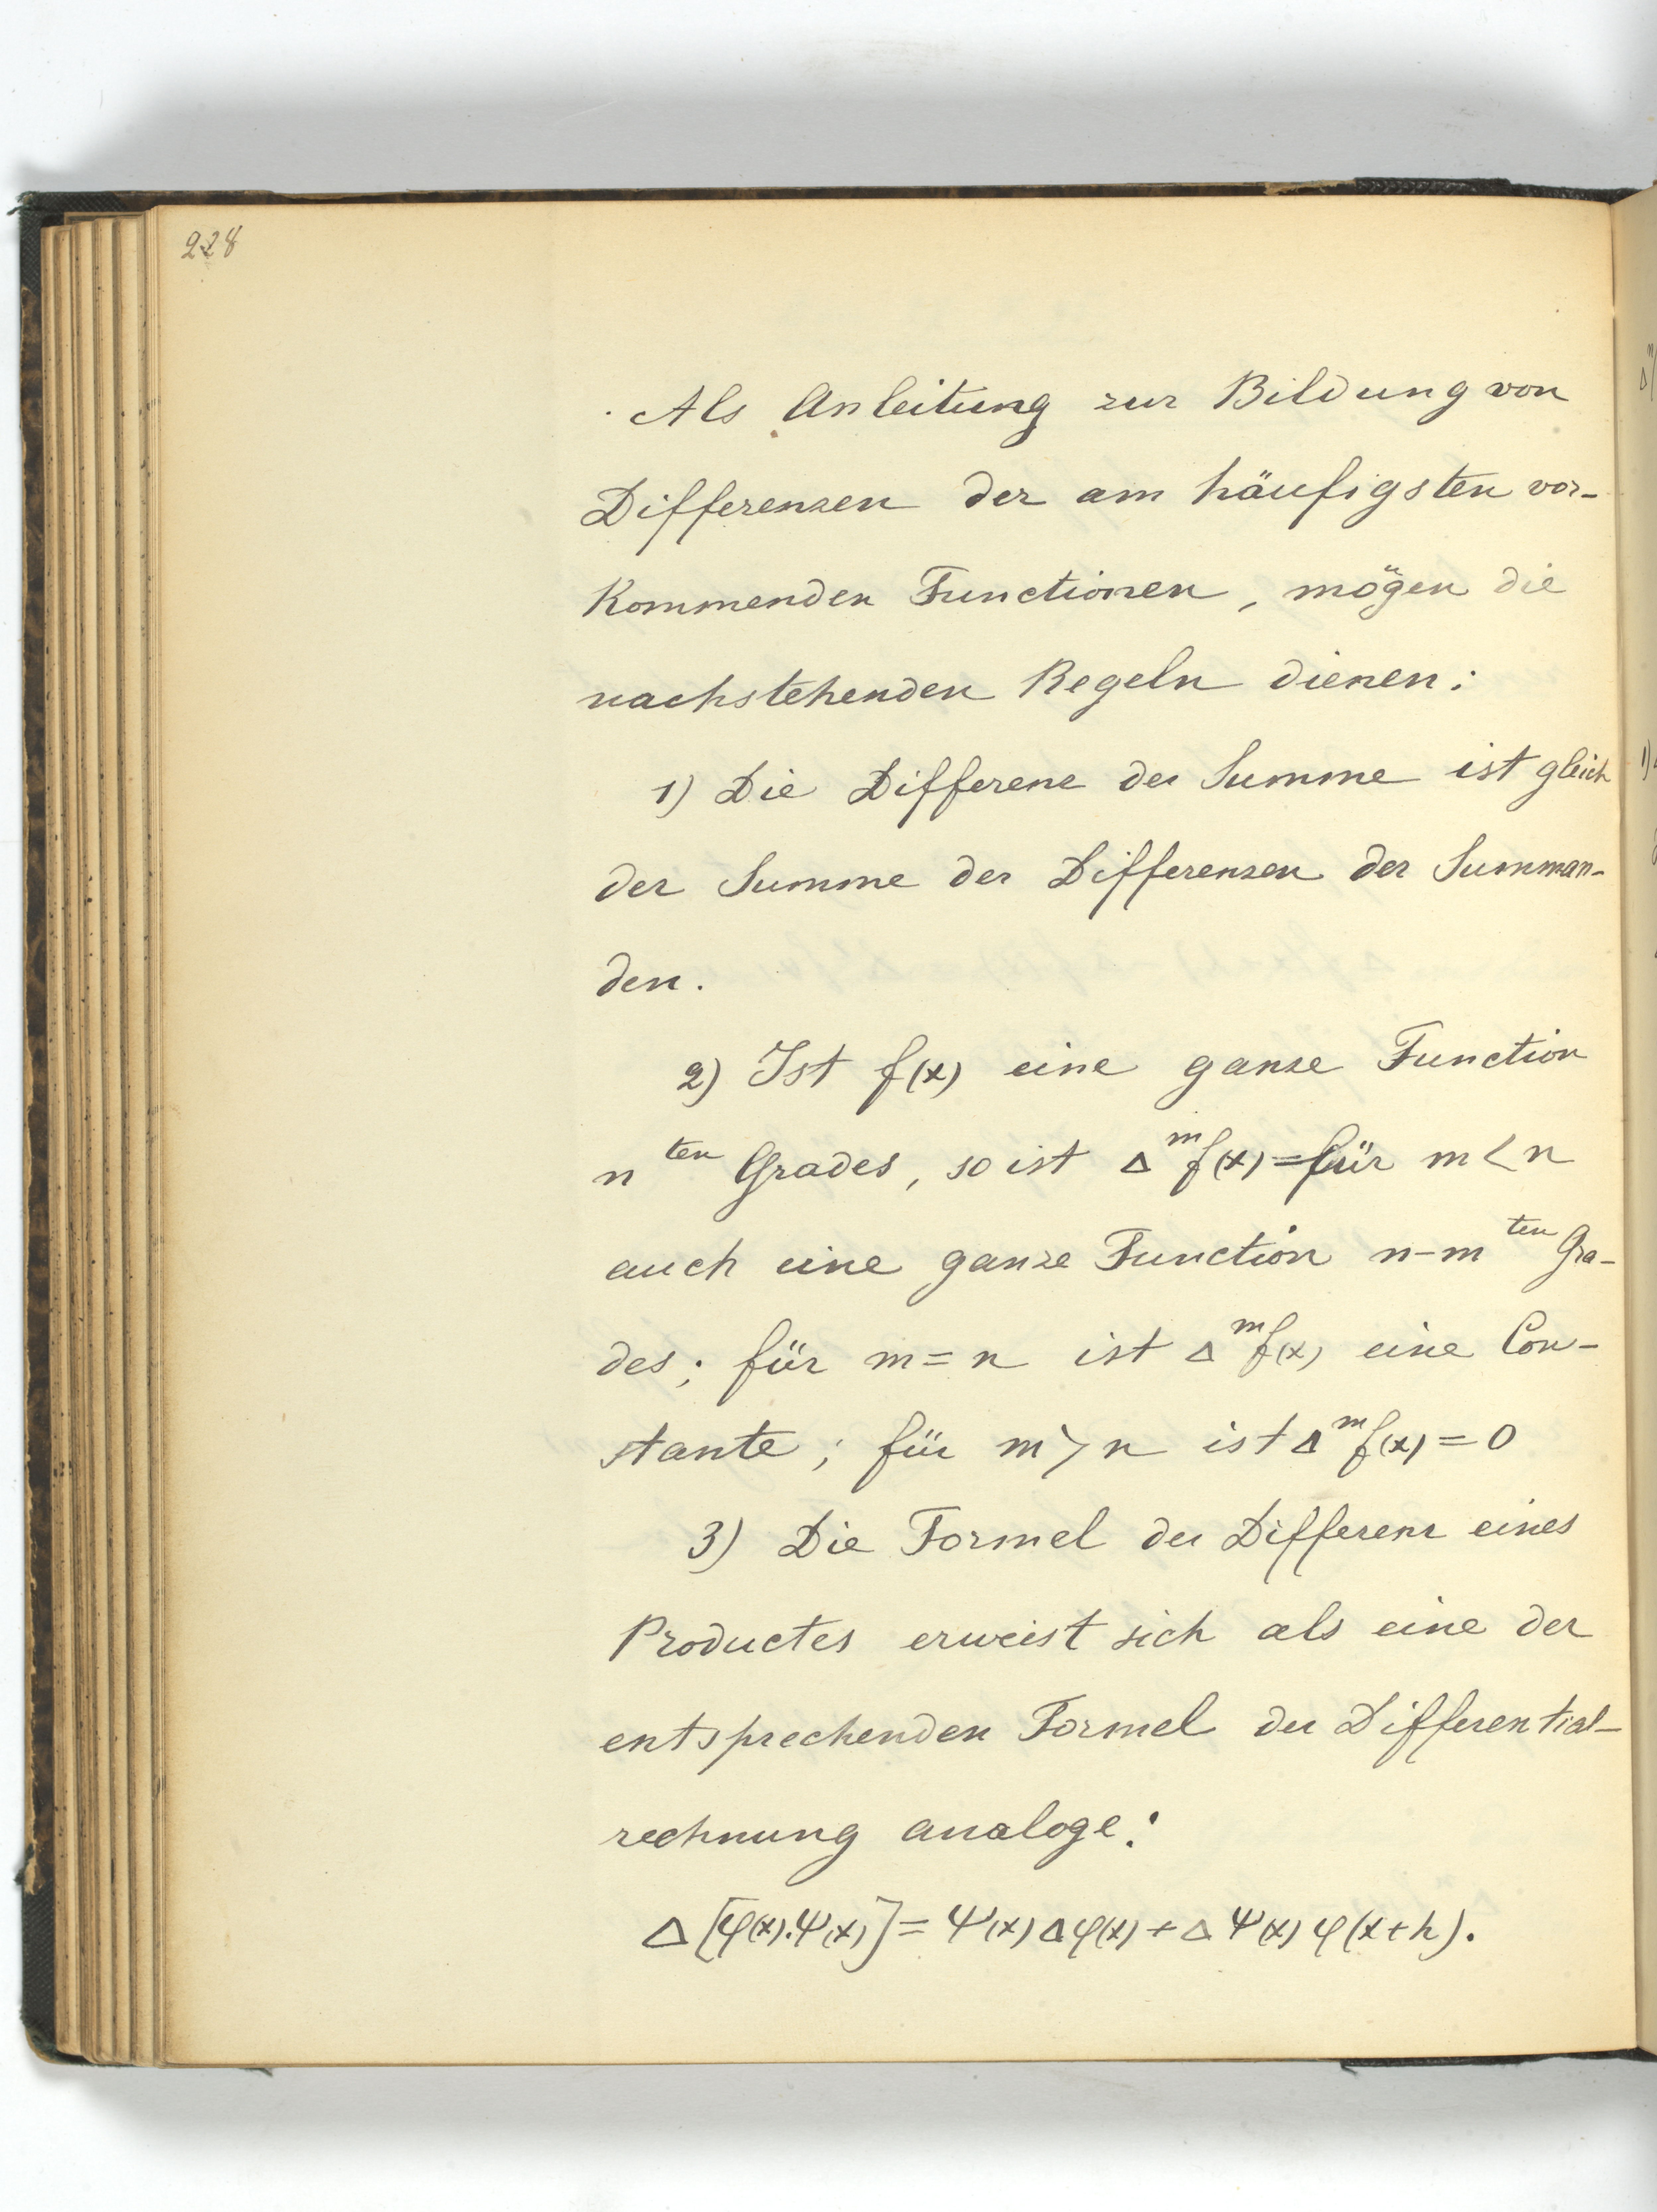 228
Als Anleitung zur Bildung von
Differenzen der am häufigsten vor-
kommenden Functionen, mögen die
nachstehenden Regeln dienen:
1) Die Differenz der Summe ist gleich
der Summe der Differenzen der Summan-
den.
2) Ist f(x) eine ganze Function
n ten Grades, so ist Δ^m f(x) = für m < n
auch eine ganze Function n-m ten Gra-
des; für m = n ist Δ^m f(x) eine Con-
stante; für m > n ist Δ^m f(x) = 0
3) Die Formel der Differenz eines
Productes erweist sich als eine der
entsprechenden Formel der Differential-
rechnung analoge:
Δ[φ(x).Ψ(x)] = Ψ(x) Δφ(x) + Δ Ψ(x) φ(x+h).